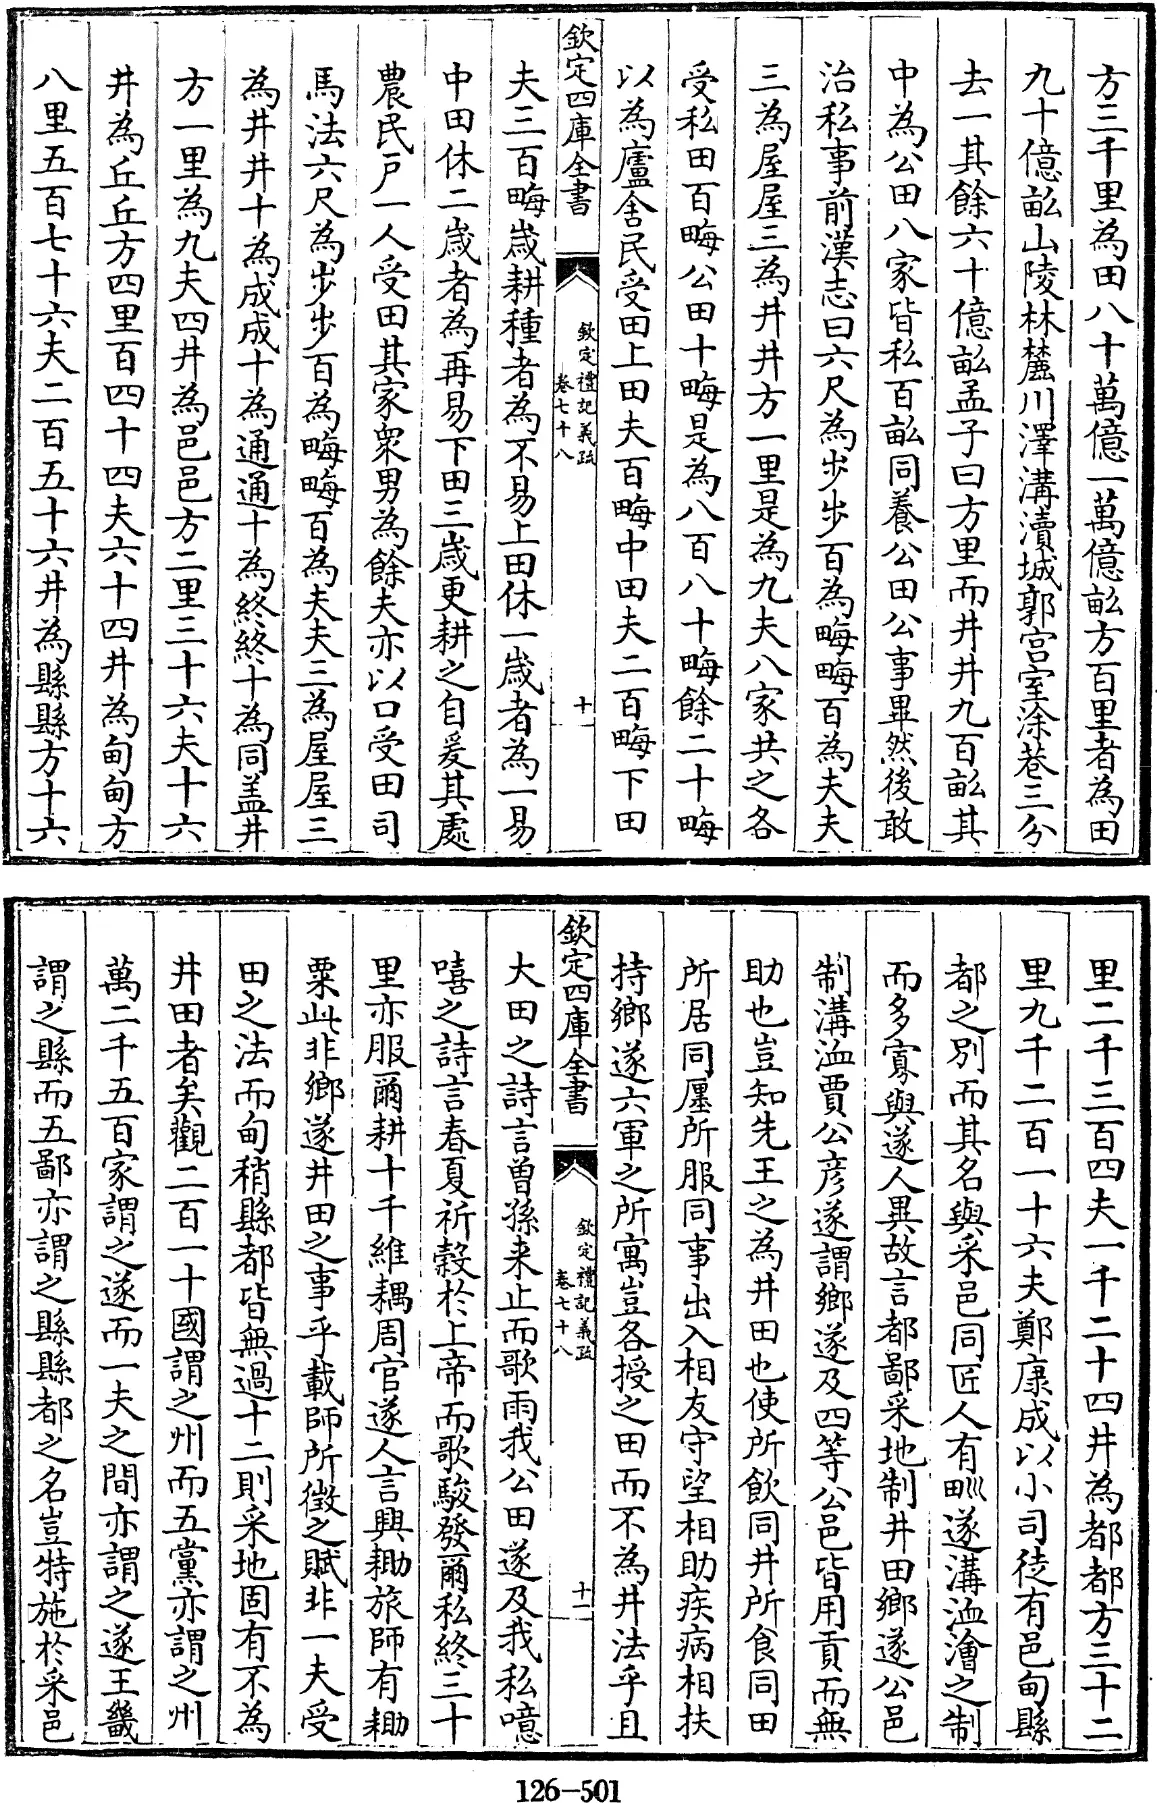 方三千里為田八十萬億一萬億畝方百里者為田
九十億畝山陵林麓川澤溝瀆城郭宫室涂巷三分
去一其餘六十億畝孟子曰方里而井井九百畝其
中為公田八家皆私百畝同養公田公事畢然後敢
治私事前漢志曰六尺為步步百為畮畮百為夫夫
三為屋屋三為井井方一里是為九夫八家共之各
受私田百畮公田十畮是為八百八十畮餘二十畮
以為廬舍民受田上田夫百畮中田夫二百畮下田
欽定四庫全書
欽定禮記義疏
卷七十八
十
夫三百畮歲耕種者為不易上田休一歲者為一易
中田休二歲者為再易下田三歲更耕之自爰其處
農民戶一人受田其家衆男為餘夫亦以口受田司
馬法六尺為步步百為畮畮百為夫夫三為屋屋三
為井井十為成成十為通通十為終終十為同盖井
方一里為九夫四井為邑邑方二里三十六夫十六
井為丘丘方四里百四十四夫六十四井為甸甸方
八里五百七十六夫二百五十六井為縣縣方十六
里二千三百四夫一千二十四井為都都方三十二
里九千二百一十六夫鄭康成以小司徒有邑甸縣
都之別而其名與采邑同匠人有甽遂溝洫澮之制
而多寡與遂人異故言都鄙采地制井田鄉遂公邑
制溝洫賈公彦遂謂鄉遂及四等公邑皆用貢而無
助也豈知先王之為井田也使所飲同井所食同田
所居同廛所服同事出入相友守望相助疾病相扶
持鄉遂六軍之所寓豈各授之田而不為井法乎且
欽定四庫全書
欽定禮記義疏
卷七十八
十一
大田之詩言曽孫来止而歌雨我公田遂及我私噫
嘻之詩言春夏祈穀於上帝而歌駿發爾私終三十
里亦服爾耕十千維耦周官遂人言興耡旅師有耡
粟此非鄉遂井田之事乎載師所徴之賦非一夫受
田之法而甸稍縣都皆無過十二則采地固有不為
井田者矣觀二百一十國謂之州而五黨亦謂之州
萬二千五百家謂之遂而一夫之間亦謂之遂王畿
謂之縣而五鄙亦謂之縣縣都之名豈特施於采邑
126-501